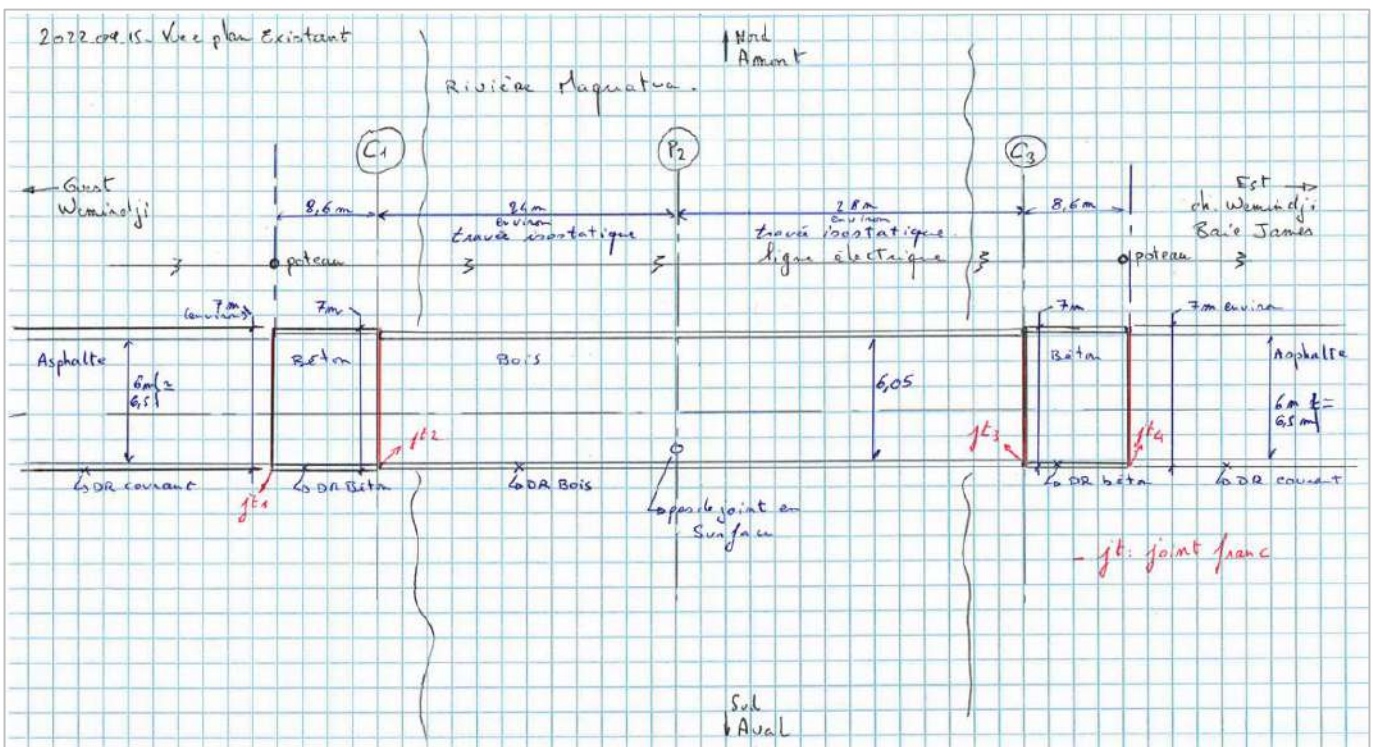 2022.09.15 - Vue plan Existant
Nord
Amont
Rivière Maquatua.
C1
P2
C3
Ouest
Wemindji
Est
ch. Wemindji
Baie James
8,6m
24m
environ
travée isostatique
28m
environ
travée isostatique
8,6m
ligne électrique
poteau
poteau
7m
(environ)
7m
7m
7m environ
Asphalte
Béton
Bois
6,05
Béton
Asphalte
6m
6,5
6m
6,5 m
jt2
jt3
jt4
DR courant
DR Béton
DR Bois
DR béton
DR courant
jt1
pas de joint en
Surface
- jt: joint franc
Sud
Aval